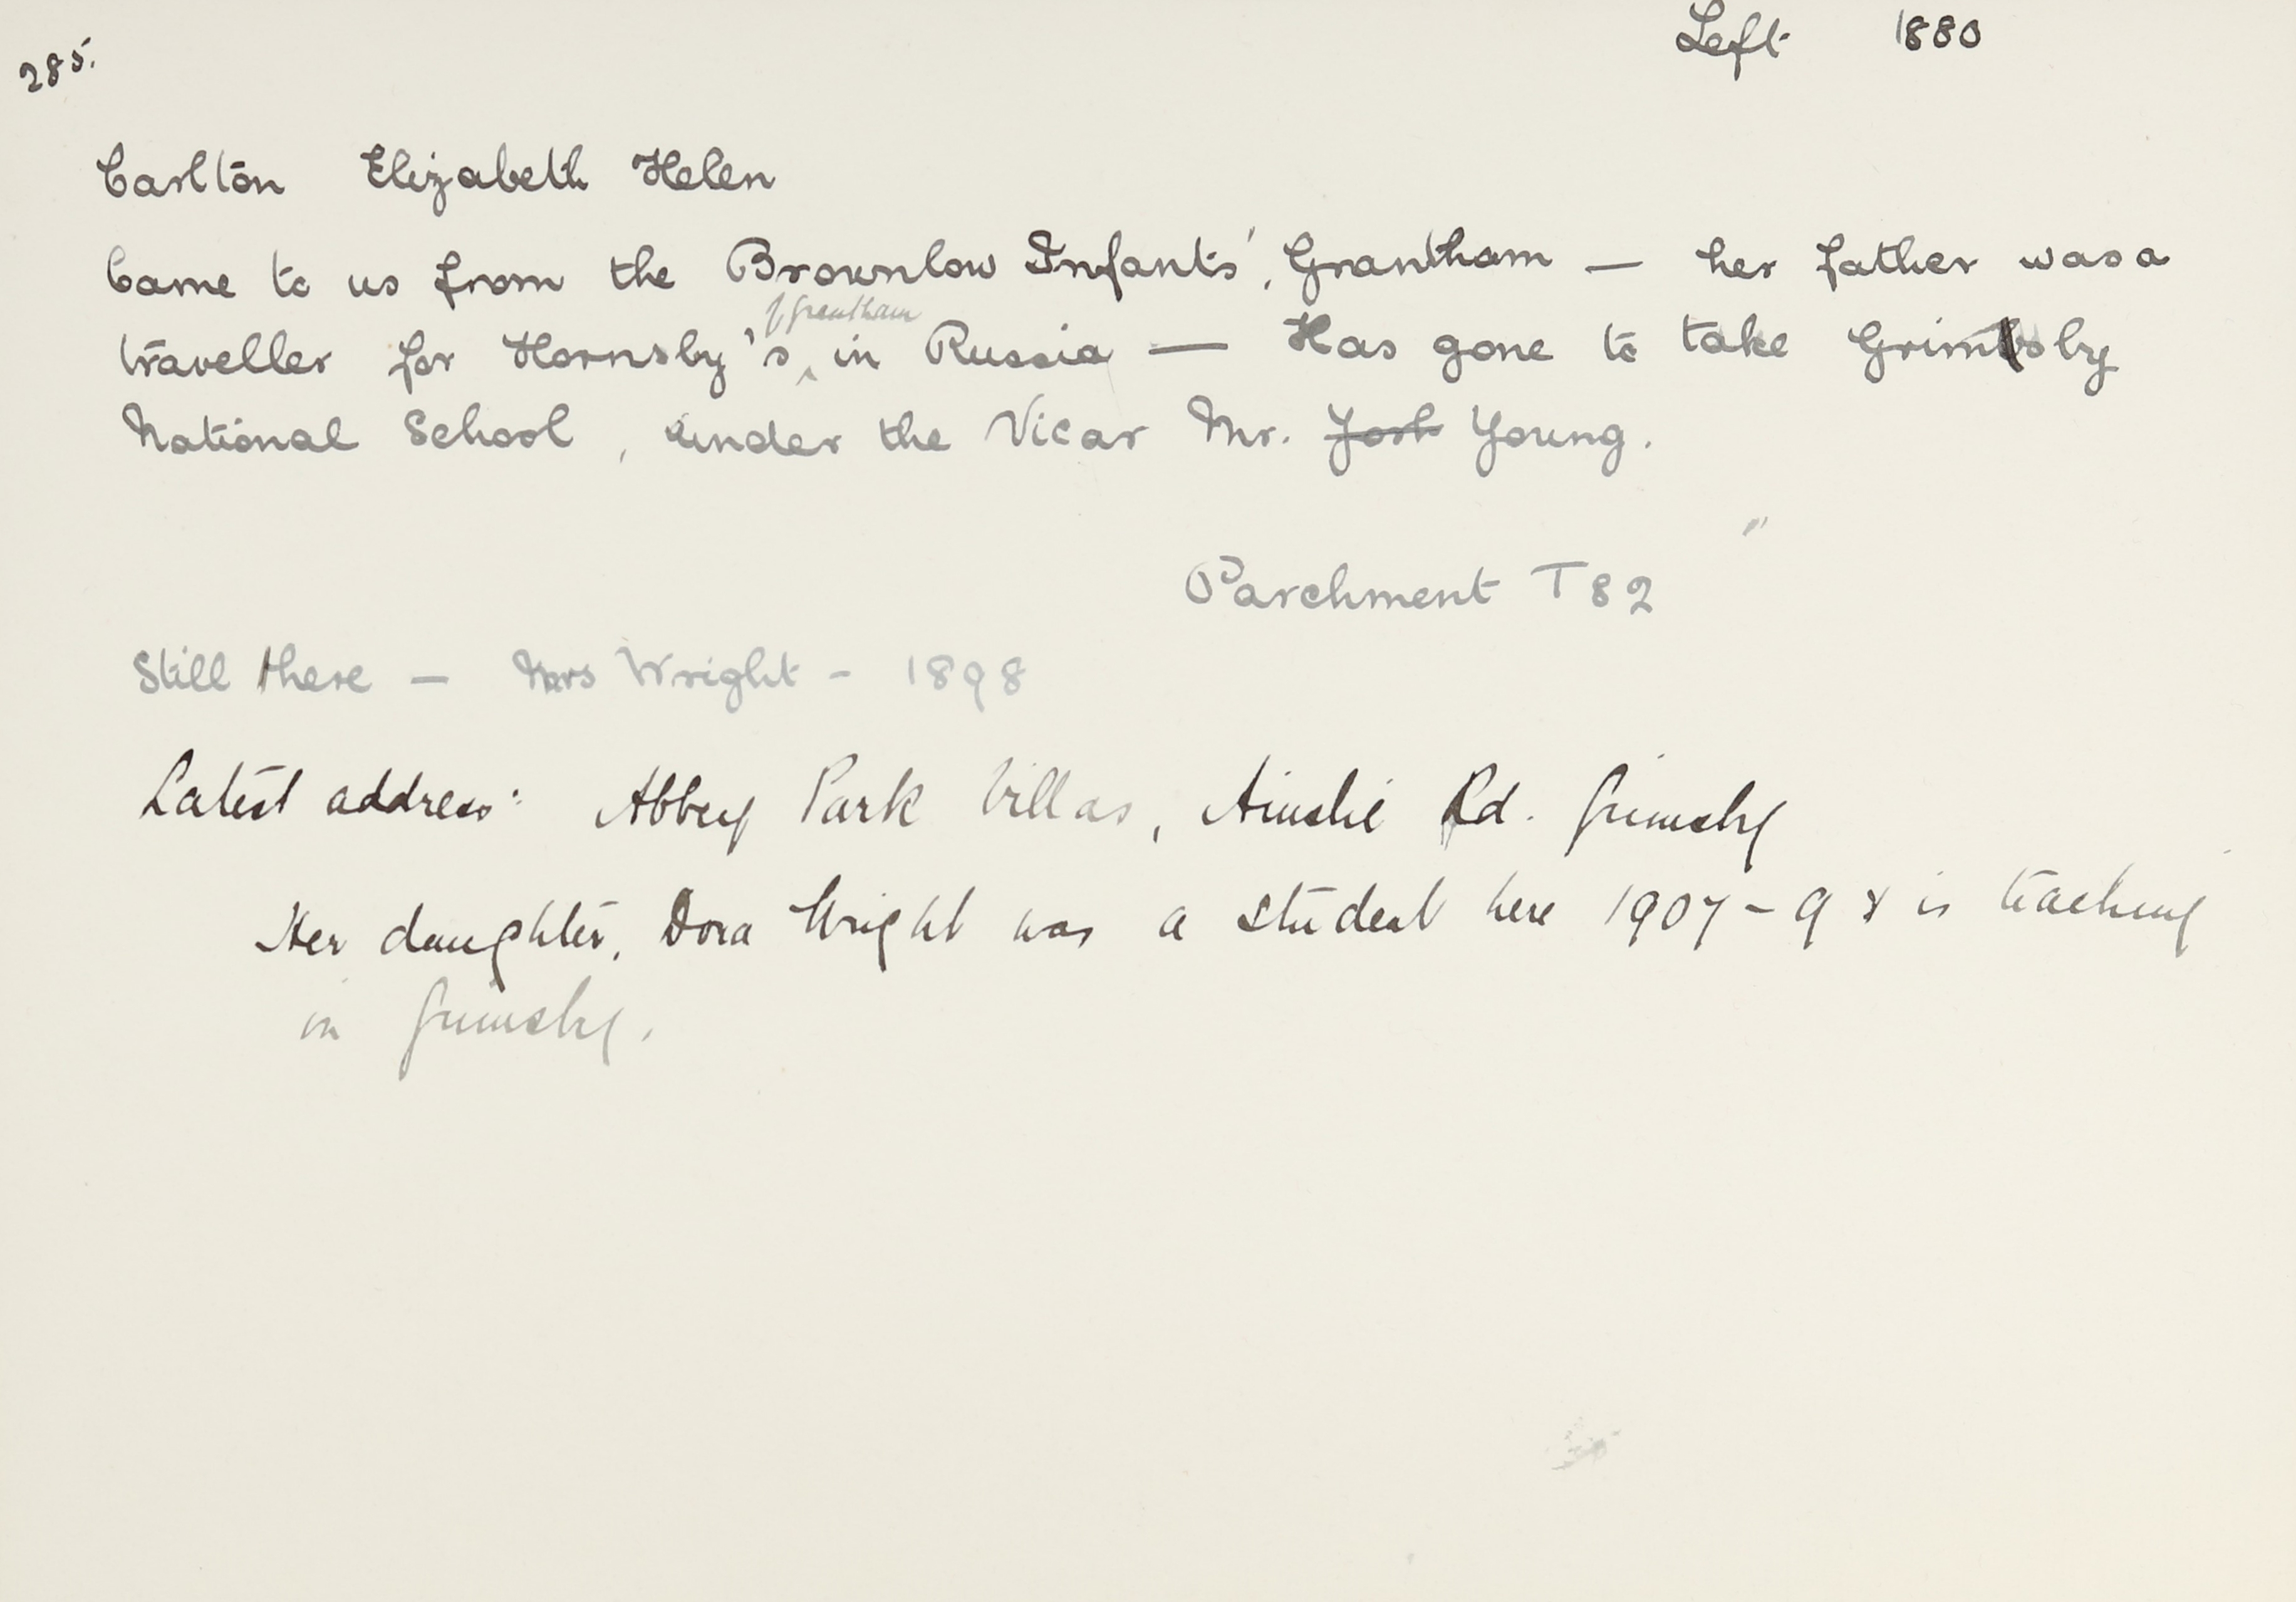 285.
Left 1880
Carlton Elizabeth Helen
Came to us from the Brownlow Infants', Grantham — her father was a
of Grantham
traveller for Hornsby's in Russia — Has gone to take Grimsby
National School, under the Vicar Mr. York Young.
Parchment T 82
Still there — Mrs Wright - 1898
Latest address: Abbey Park Villas, Ainslie Rd. Grimsby
Her daughter, Dora Wright was a student here 1907-9 & is teaching
in Grimsby.